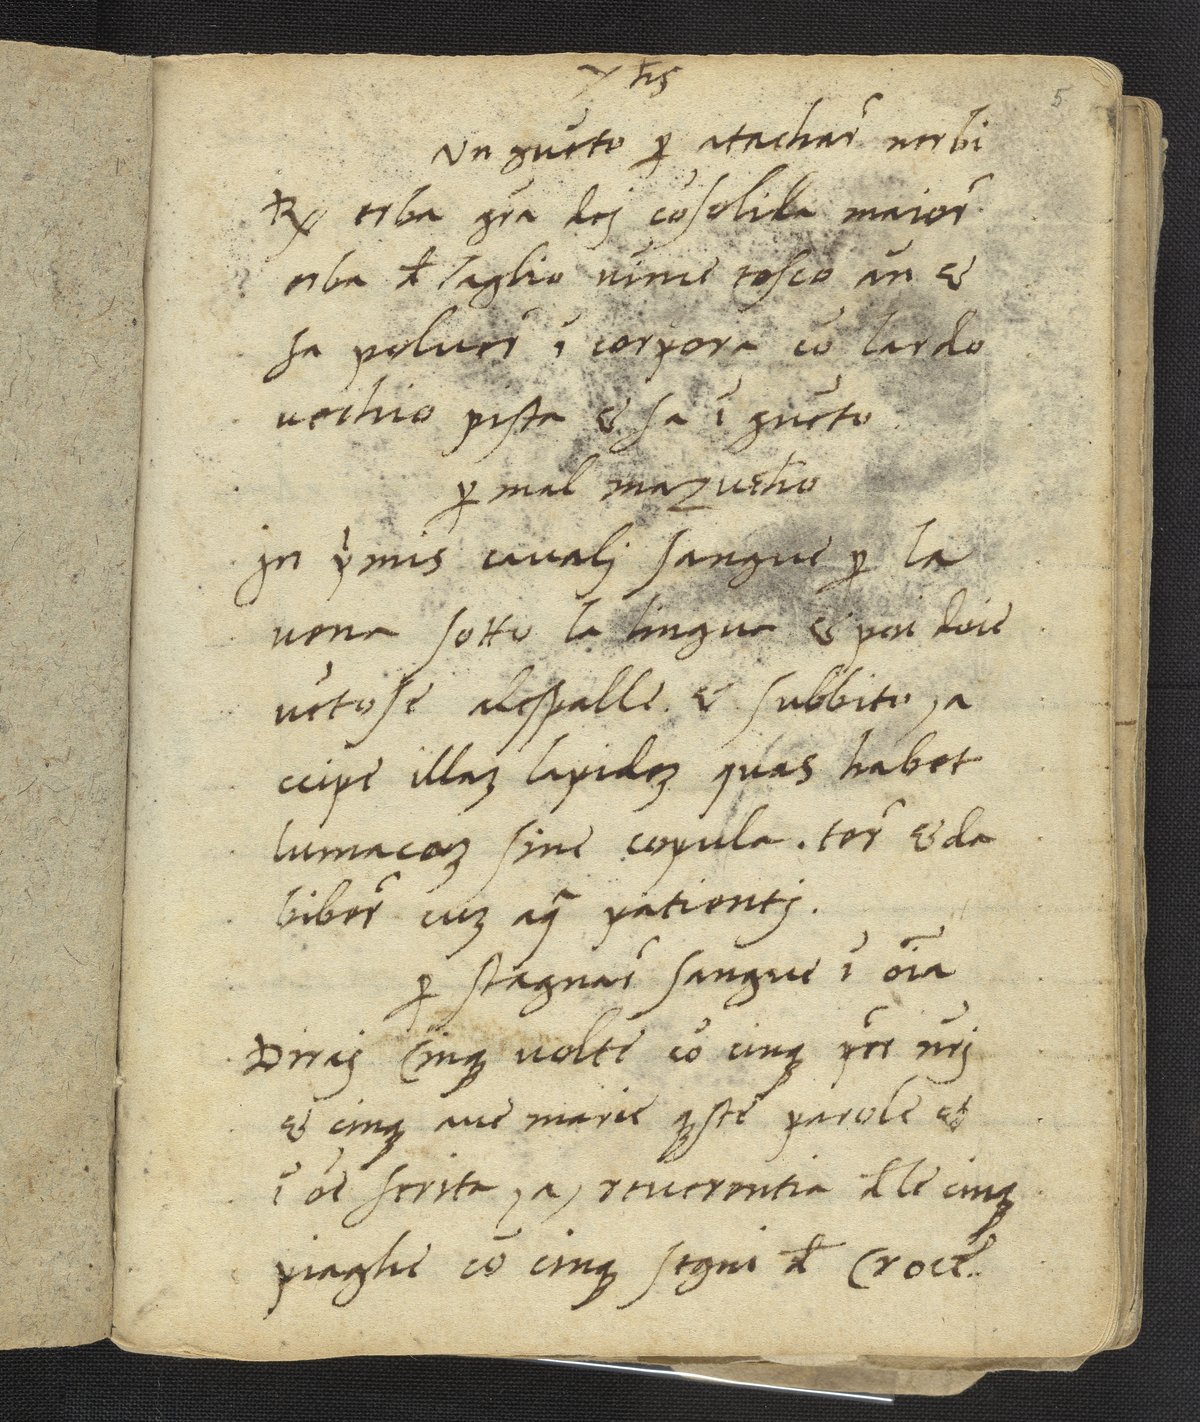 yħs
5
Ungue̅to ꝑ atachar̅ nerbi
℞ erba gra̅ dej co̅solida maior̅
erba đ laglio uime tosco an̅ &
fa poluer̅ i̅ corpora co̅ lardo
uechio pista & fa i̅ gue̅to
ꝑ mal mazuc̅ho
In p̅mis cauali sangue ꝑ la
uena sotto la lingua & poi doie
ue̅tose alespalle & subbito, a
ccipe illaꝫ lapideꝫ quas habet
lumacoꝫ sine copula. ter̅ & da
biber̅ cuꝫ aq̅ patientj.
ꝑ stagnar̅ sangue i̅ oi̅a
Diraj Cinqꝫ uolte co̅ cinqꝫ pr̅e nr̅j
& cinqꝫ aue marie qꝫste parole &
i̅ oe̅ ferita, a, reuerentia đle cinqꝫ
piaghe co̅ cinqꝫ segni đ Croce̅.